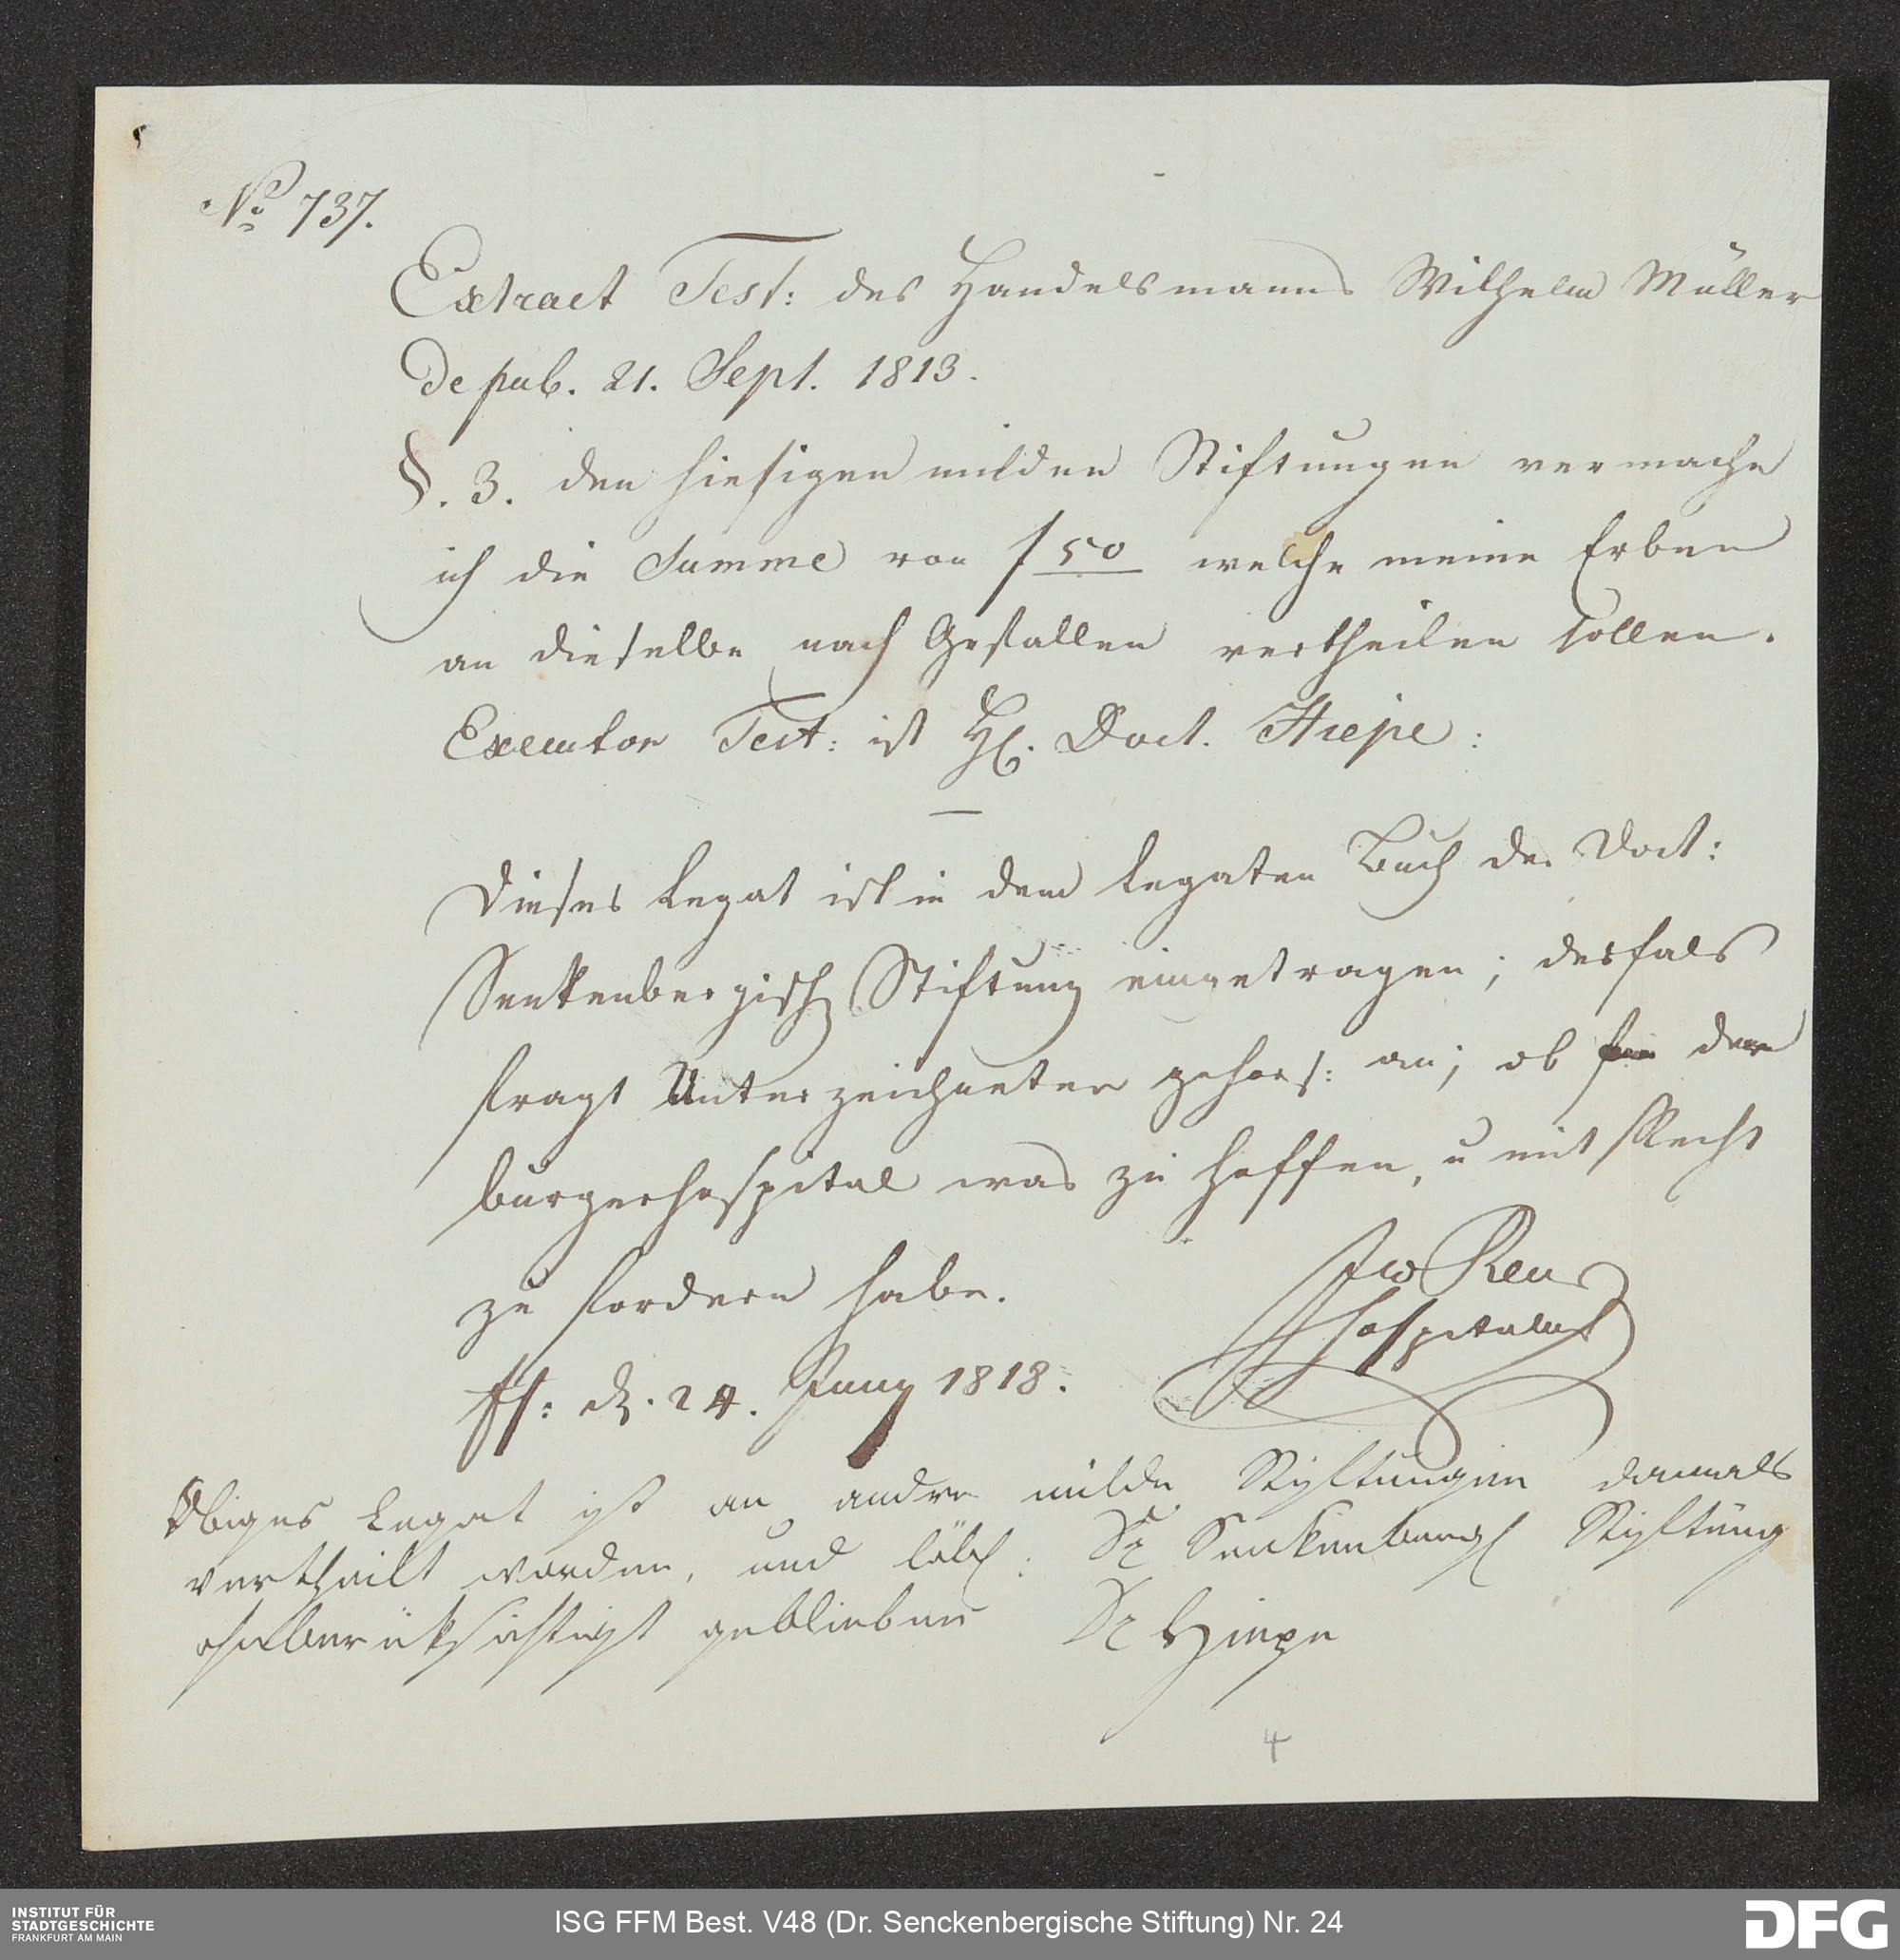 No 737.
Extract Test: des Handelsmanns Wilhelm Müller
de pub. 21. Sept. 1813.
§. 3. den hiesigen milden Stiftungen vermache
ich die Summe von f 50 welche meine Erben
an dieselbe nach Gefallen vertheilen sollen.
Executor Test: ist H. Doct. Hiepe:
Dieses Legat ist in dem Legaten Buch der Doct:
Senkenbergisch Stiftung eingetragen; desfals
fragt Unterzeichneter gehors: an; ob der
burgerhospital was zu hoffen, u mit Recht
zu fordern habe.
Reus
Hospitalmst
ff: d. 24. Juny 1818.
Obiges Legat ist an andre milde Stiftungen damals
vertheilt worden, und löbl: Dr Senkenbergl Stiftung
ohnberüksichtigt geblieben Dr Hiepe
4
INSTITUT FÜR
STADTGESCHICHTE
FRANKFURT AM MAIN
ISG FFM Best. V48 (Dr. Senckenbergische Stiftung) Nr. 24
DFG